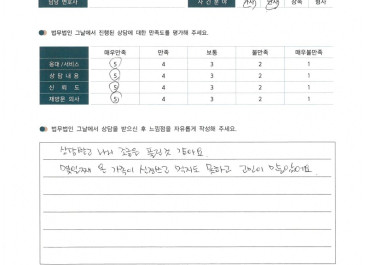 담당 변호사 사건 분야 가사 민사 상속 형사
법무법인 그날에서 진행된 상담에 대한 만족도를 평가해 주세요.
매우만족 만족 보통 불만족 매우불만족
응대 / 서비스 5 4 3 2 1
상 담 내 용 5 4 3 2 1
신 뢰 도 5 4 3 2 1
재방문 의사 5 4 3 2 1
법무법인 그날에서 상담을 받으신 후 느낌점을 자유롭게 작성해 주세요.
상담받고 나서 조금은 풀린것 같아요
몇일째 온 가족이 신경쓰고 먹지도 못하고 고민이 많았어요